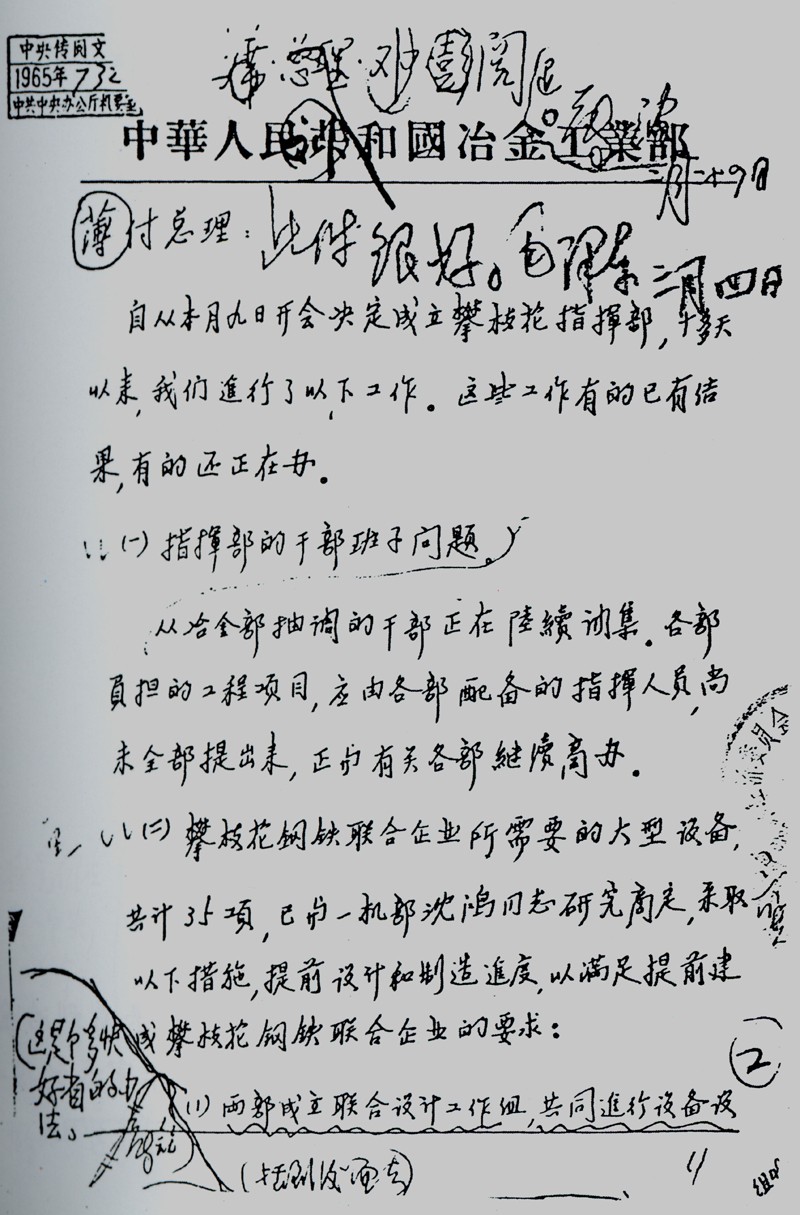 中央传阅文
1965年732
中共中央办公厅机要室
主席·总理·邓彭阅
中華人民共和國冶金工業部
二月二十9日
薄付总理：
此件很好。毛泽东 三月四日
自从本月九日开会决定成立攀枝花指揮部，十多天
以来，我们進行了以下工作。这些工作有的已有结
果，有的还正在办。
(一)指揮部的干部班子问题。
从冶金部抽调的干部正在陸續调集。各部
負担的工程项目，应由各部配备的指揮人员，尚
未全部提出来，正与有关各部継续商办。
(二)攀枝花钢铁联合企业所需要的大型设备，
共计35項，已与一机部沈鸿同志研究商定，采取
以下措施，提前设计和制造進度，以满足提前建
成攀枝花钢铁联合企业的要求：
(这是个多快
好省的办
法。
(1)两部成立联合设计工作组，共同進行设备设
②